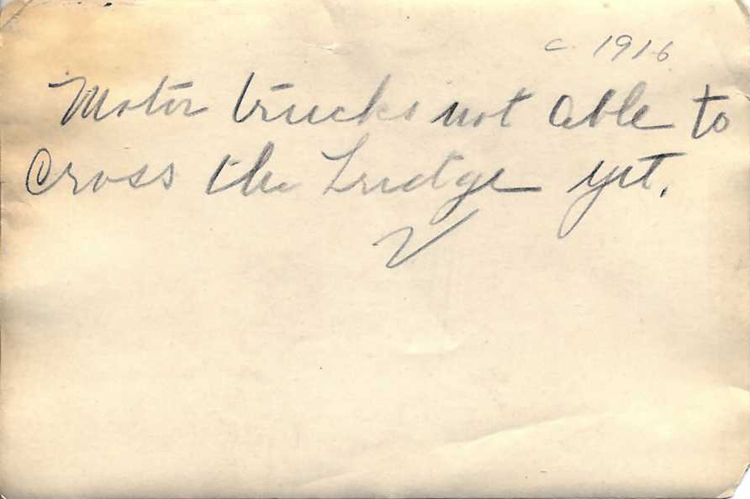 c. 1916
Motor trucks not able to
cross the bridge yet.
V